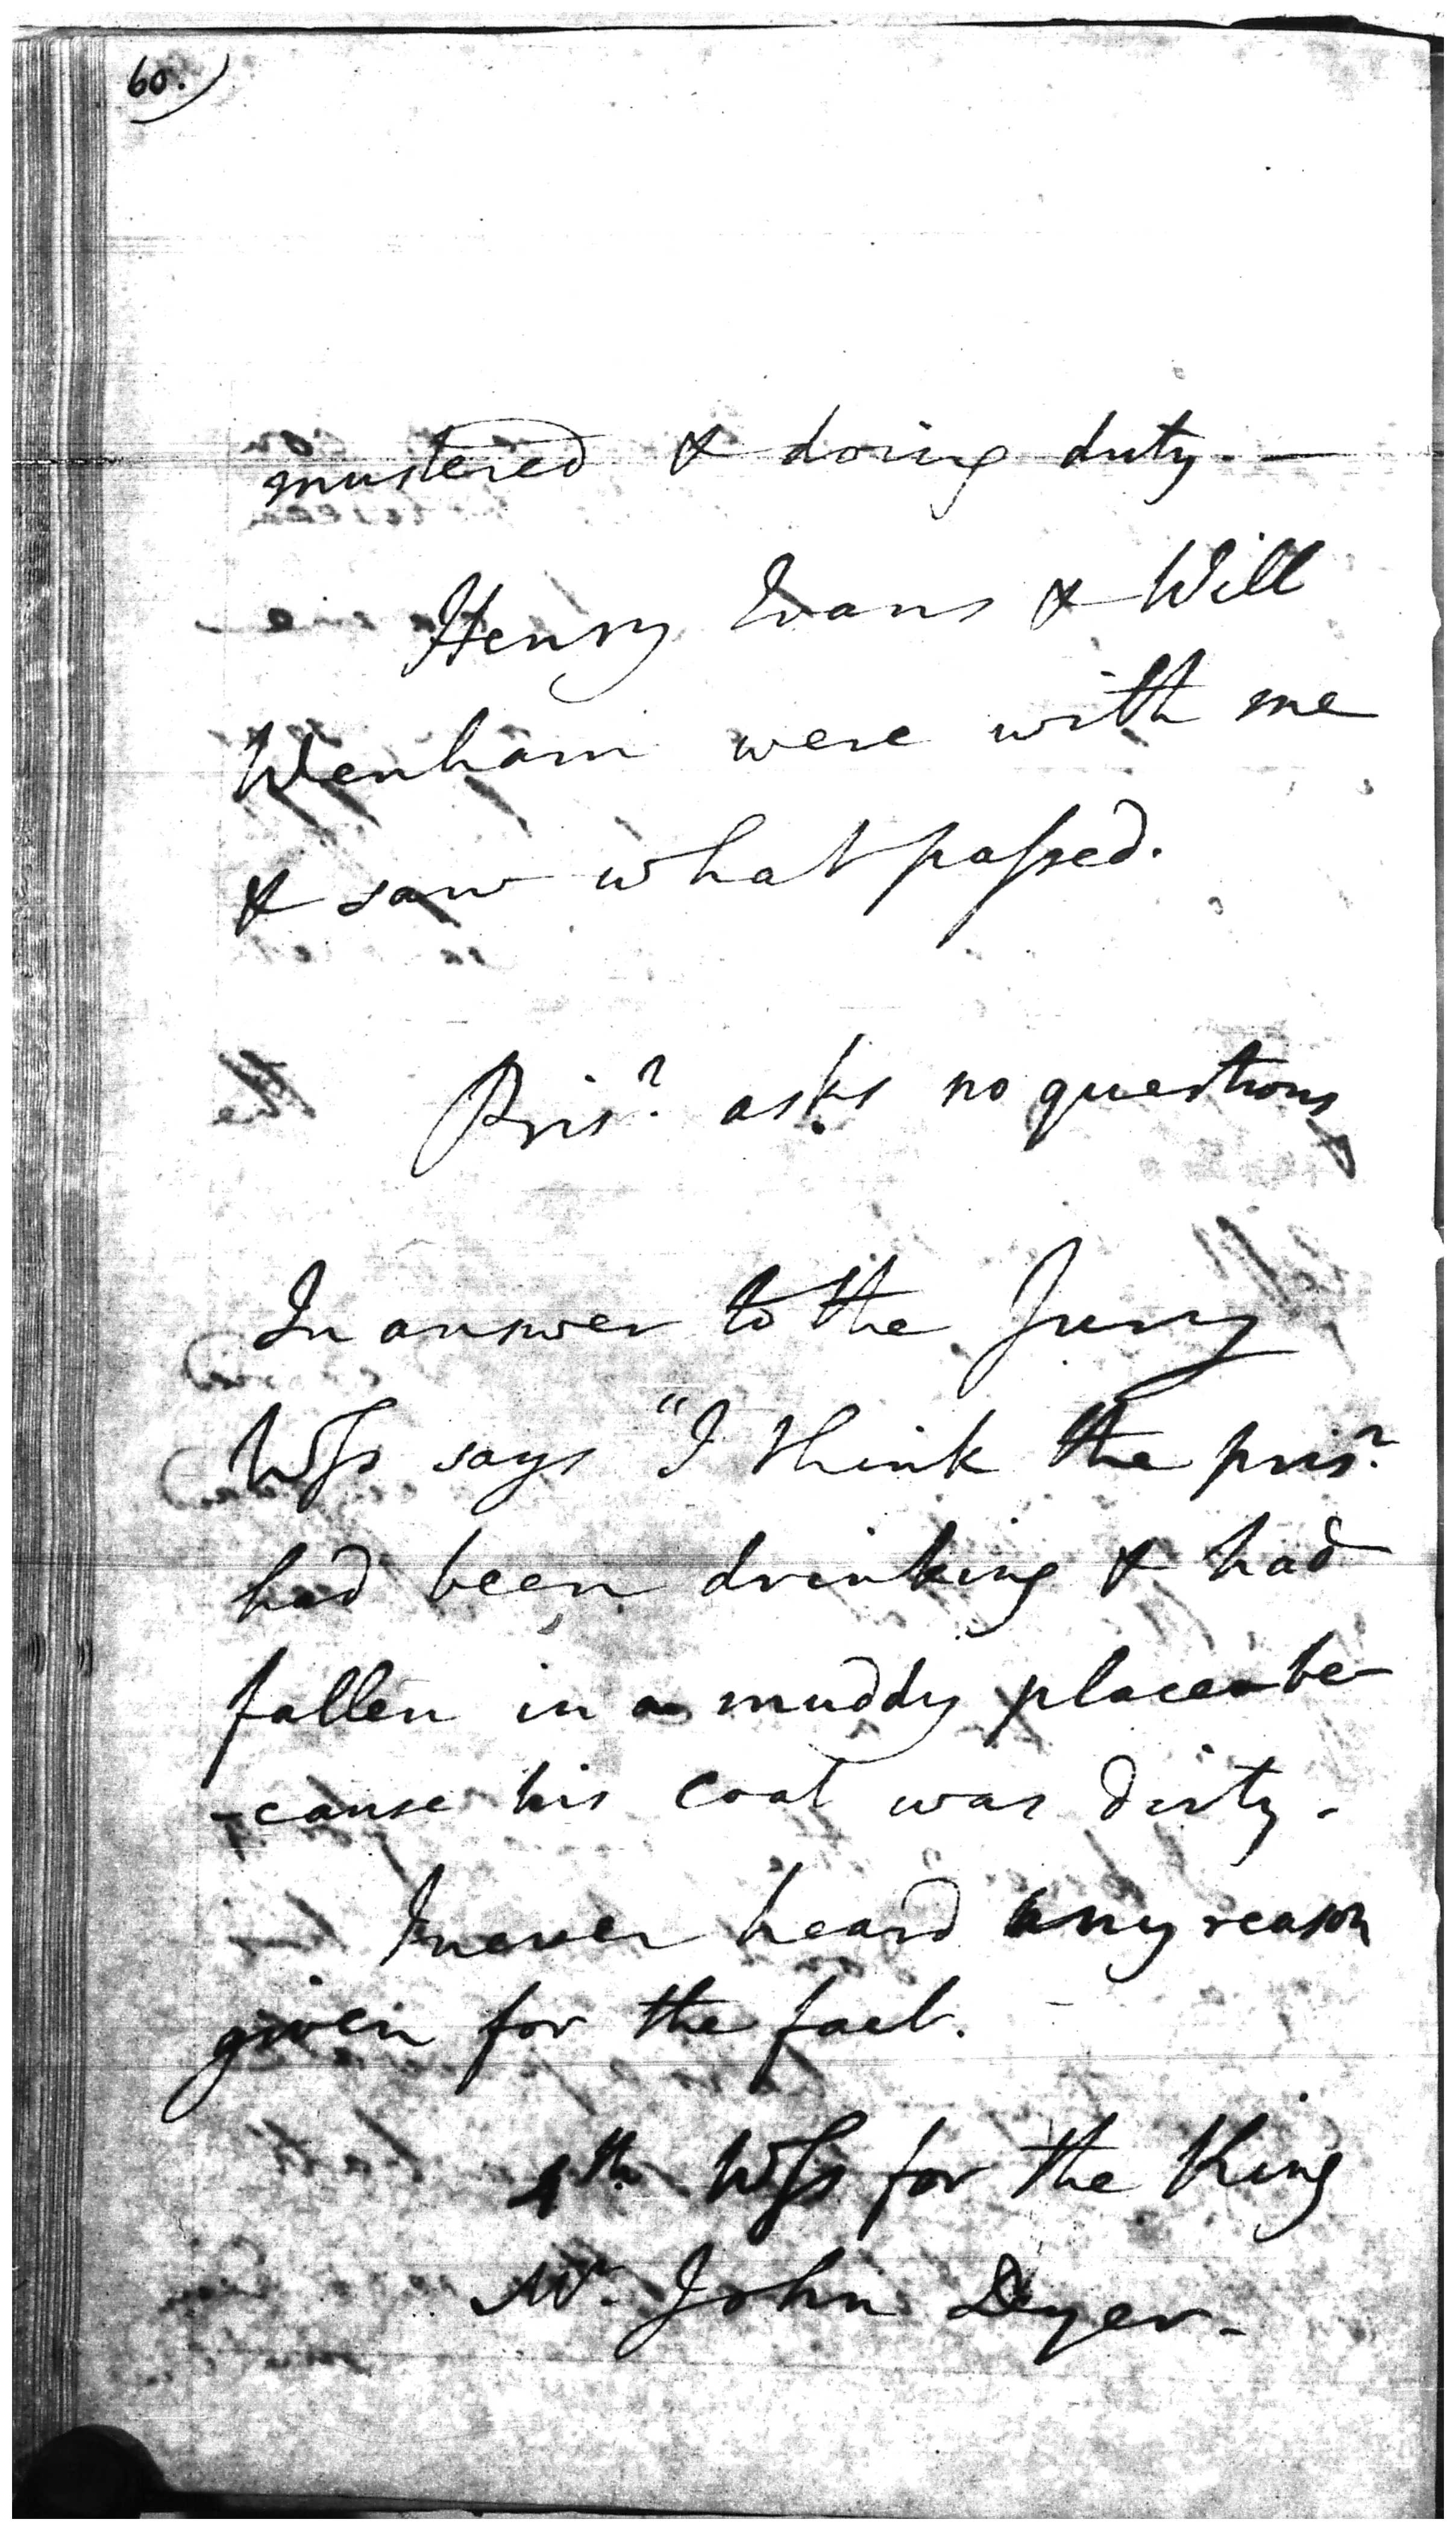 60.)
mustered & doing duty. —
Henry Evans & Will
Wenham were with me
& saw what passed.
Prisr. asks no questions
In answer to the Jury
Wss says "I think the prisr.
had been drinking & had
fallen in a muddy place be-
-cause his coat was dirty.
I never heard any reason
given for the fact.
4th Wss for the King
Mr. John Dyer.